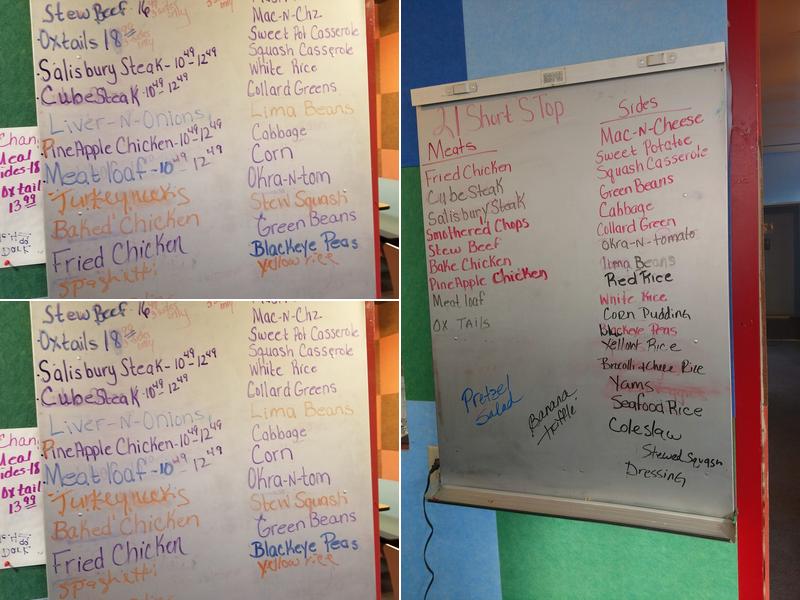 Stew Beef - 16
Oxtails 18
sides only
Salisbury Steak - 10.49 - 12.49
CubeSteak - 10.49 - 12.49
Liver-N-Onions
PineApple Chicken - 10.49 12.49
Meat loaf - 10.49 12.49
Turkeynecks
Baked Chicken
Fried Chicken
Spaghetti
Mac-N-Chz
Sweet Pot Casserole
Squash Casserole
White Rice
Collard Greens
Lima Beans
Cabbage
Corn
Okra-N-tom
Stew Squash
Green Beans
Blackeye Peas
Yellow rice
Chan
Meal
ides-18
Ox tail
13.99
Stew Beef - 16
Oxtails 18
only
Salisbury Steak - 10.49 - 12.49
CubeSteak - 10.49 - 12.49
Liver-N-Onions
PineApple Chicken - 10.49 12.49
Meat loaf - 10.49 12.49
Turkeynecks
Baked Chicken
Fried Chicken
Spaghetti
Mac-N-Chz
Sweet Pot Casserole
Squash Casserole
White Rice
Collard Greens
Lima Beans
Cabbage
Corn
Okra-N-tom
Stew Squash
Green Beans
Blackeye Peas
Yellow rice
Chan
Meal
ides-18
Ox tail
13.99
21 Short STop
Meats
Fried Chicken
Cube Steak
Salisbury Steak
Smothered Chops
Stew Beef
Bake Chicken
PineApple Chicken
Meat loaf
Ox TAils
Pretzel
Salad
Banana
Sides
Mac-N-Cheese
Sweet Potatoe
Squash Casserole
Green Beans
Cabbage
Collard Green
Okra-n-tomato
Lima Beans
Red Rice
White Rice
Corn Pudding
Blackeye Peas
Yellow Rice
Brocolli & Cheese Rice
Yams
Seafood Rice
Coleslaw
Stewed Squash
Dressing